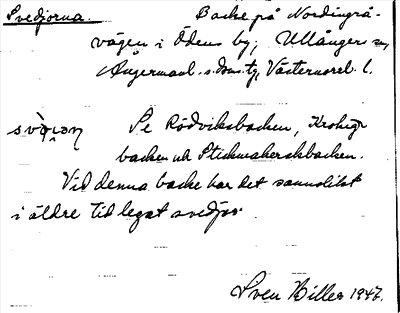 Svedjorna. Backe på Nordingrå-
vägen i Ödens by, Ullånger sn,
Ångermanl. s. doms. tg, Västernorrl. l.
Se Rödviksbacken, Krokig-
backen och Stickmakerskbacken.
Vid denna backe har det sannolikt
i äldre tid legat svedjor.
Sven Hiller 1947.